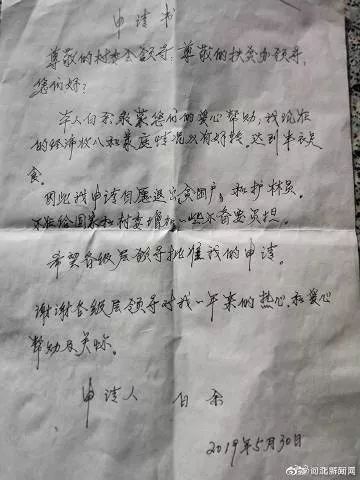 申请书
尊敬的村委会领导：尊敬的扶贫办领导，
您们好：
本人白余承蒙您们的爱心帮助，我现在
的经济收入和家庭情况以有好转。达到丰衣足
食。
因此我申请自愿退出贫困户，和护林员。
不在给国家和村委增加一些不必要负担。
希望各级层领导批准我的申请。
谢谢各级层领导对我一年来的热心。和爱心
帮助及关怀。
申请人 白余
2019年5月30日
@河北新闻网